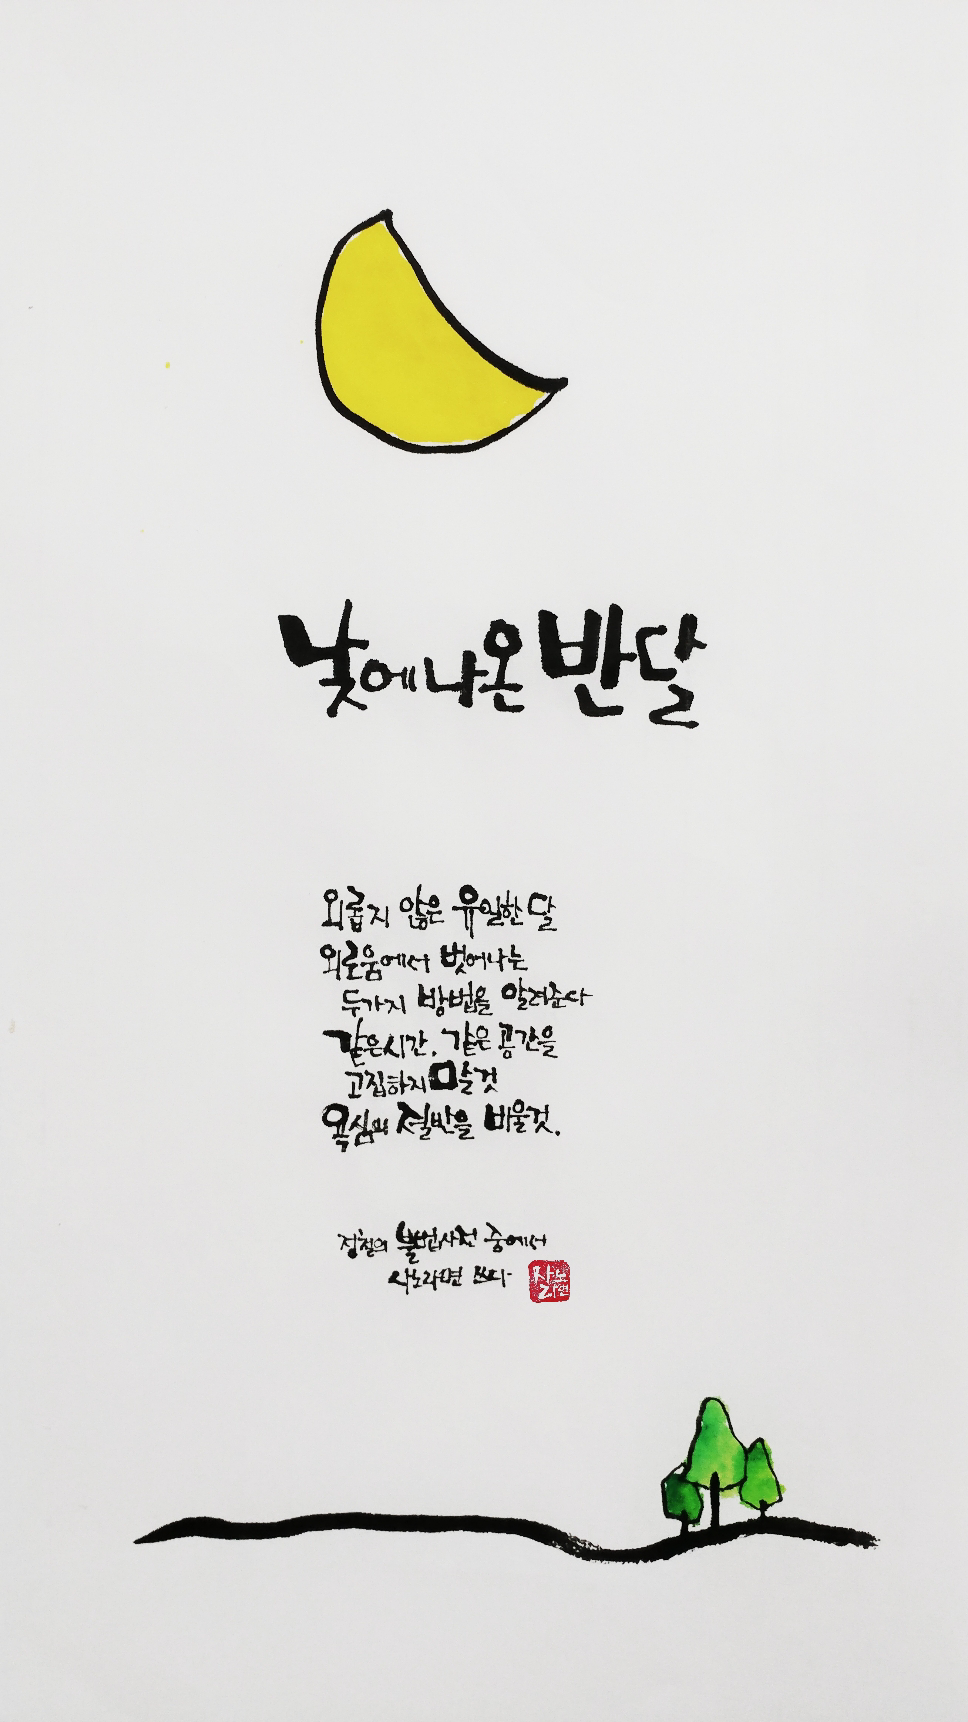 낮에 나온 반달
외롭지 않은 유일한 달
외로움에서 벗어나는
두가지 방법을 알려준다
같은시간, 같은 공간을
고집하지 말것
욕심의 절반을 비울것.
정철의 불법사전 중에서
사노라면 쓰다
사노라면